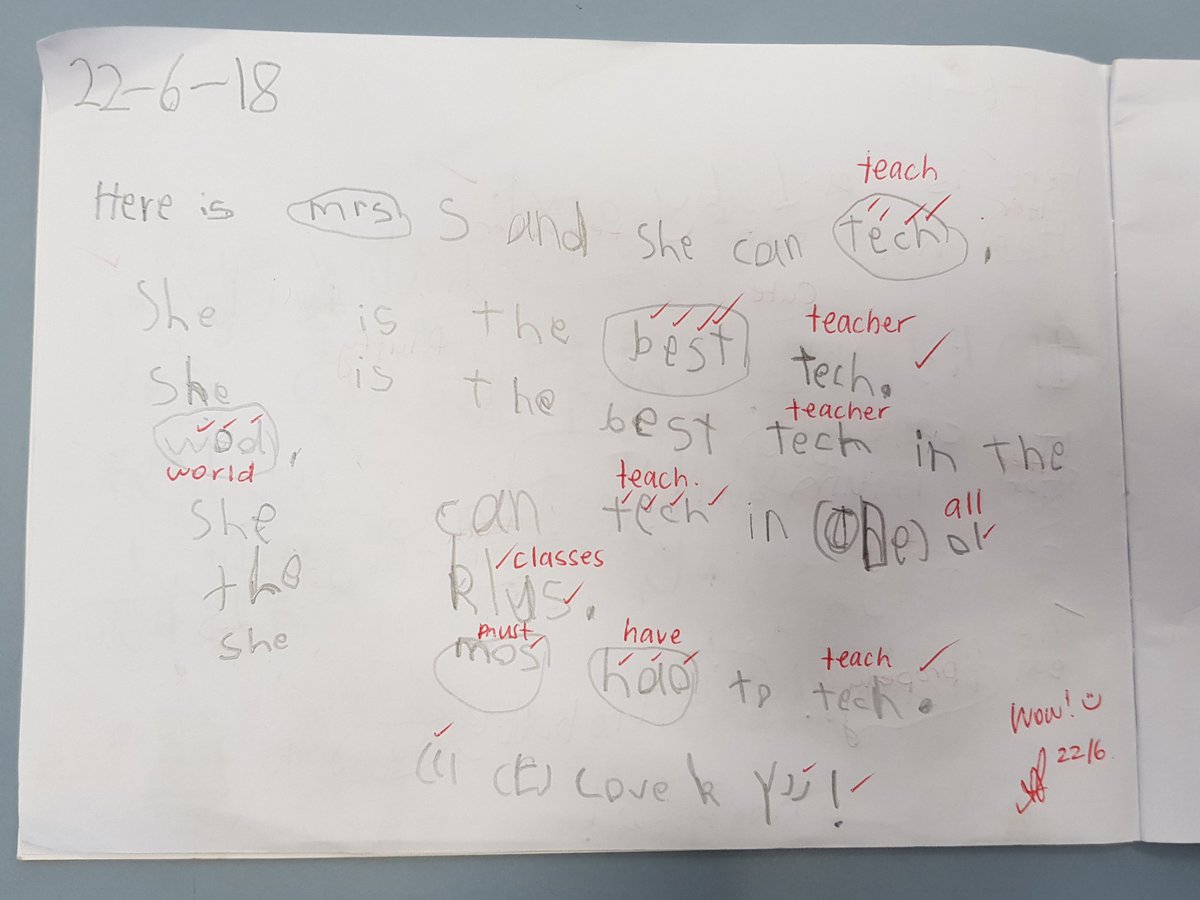 22-6-18
teach
Here is mrs S and she can tech.
She is the best tech.
teacher
She is the best tech in the
teacher
wod.
world
teach.
she can tech in (the) ol
all
the klus.
classes
must have teach
she mos hao to tech.
Wow!
22/6
(I) Love k you!